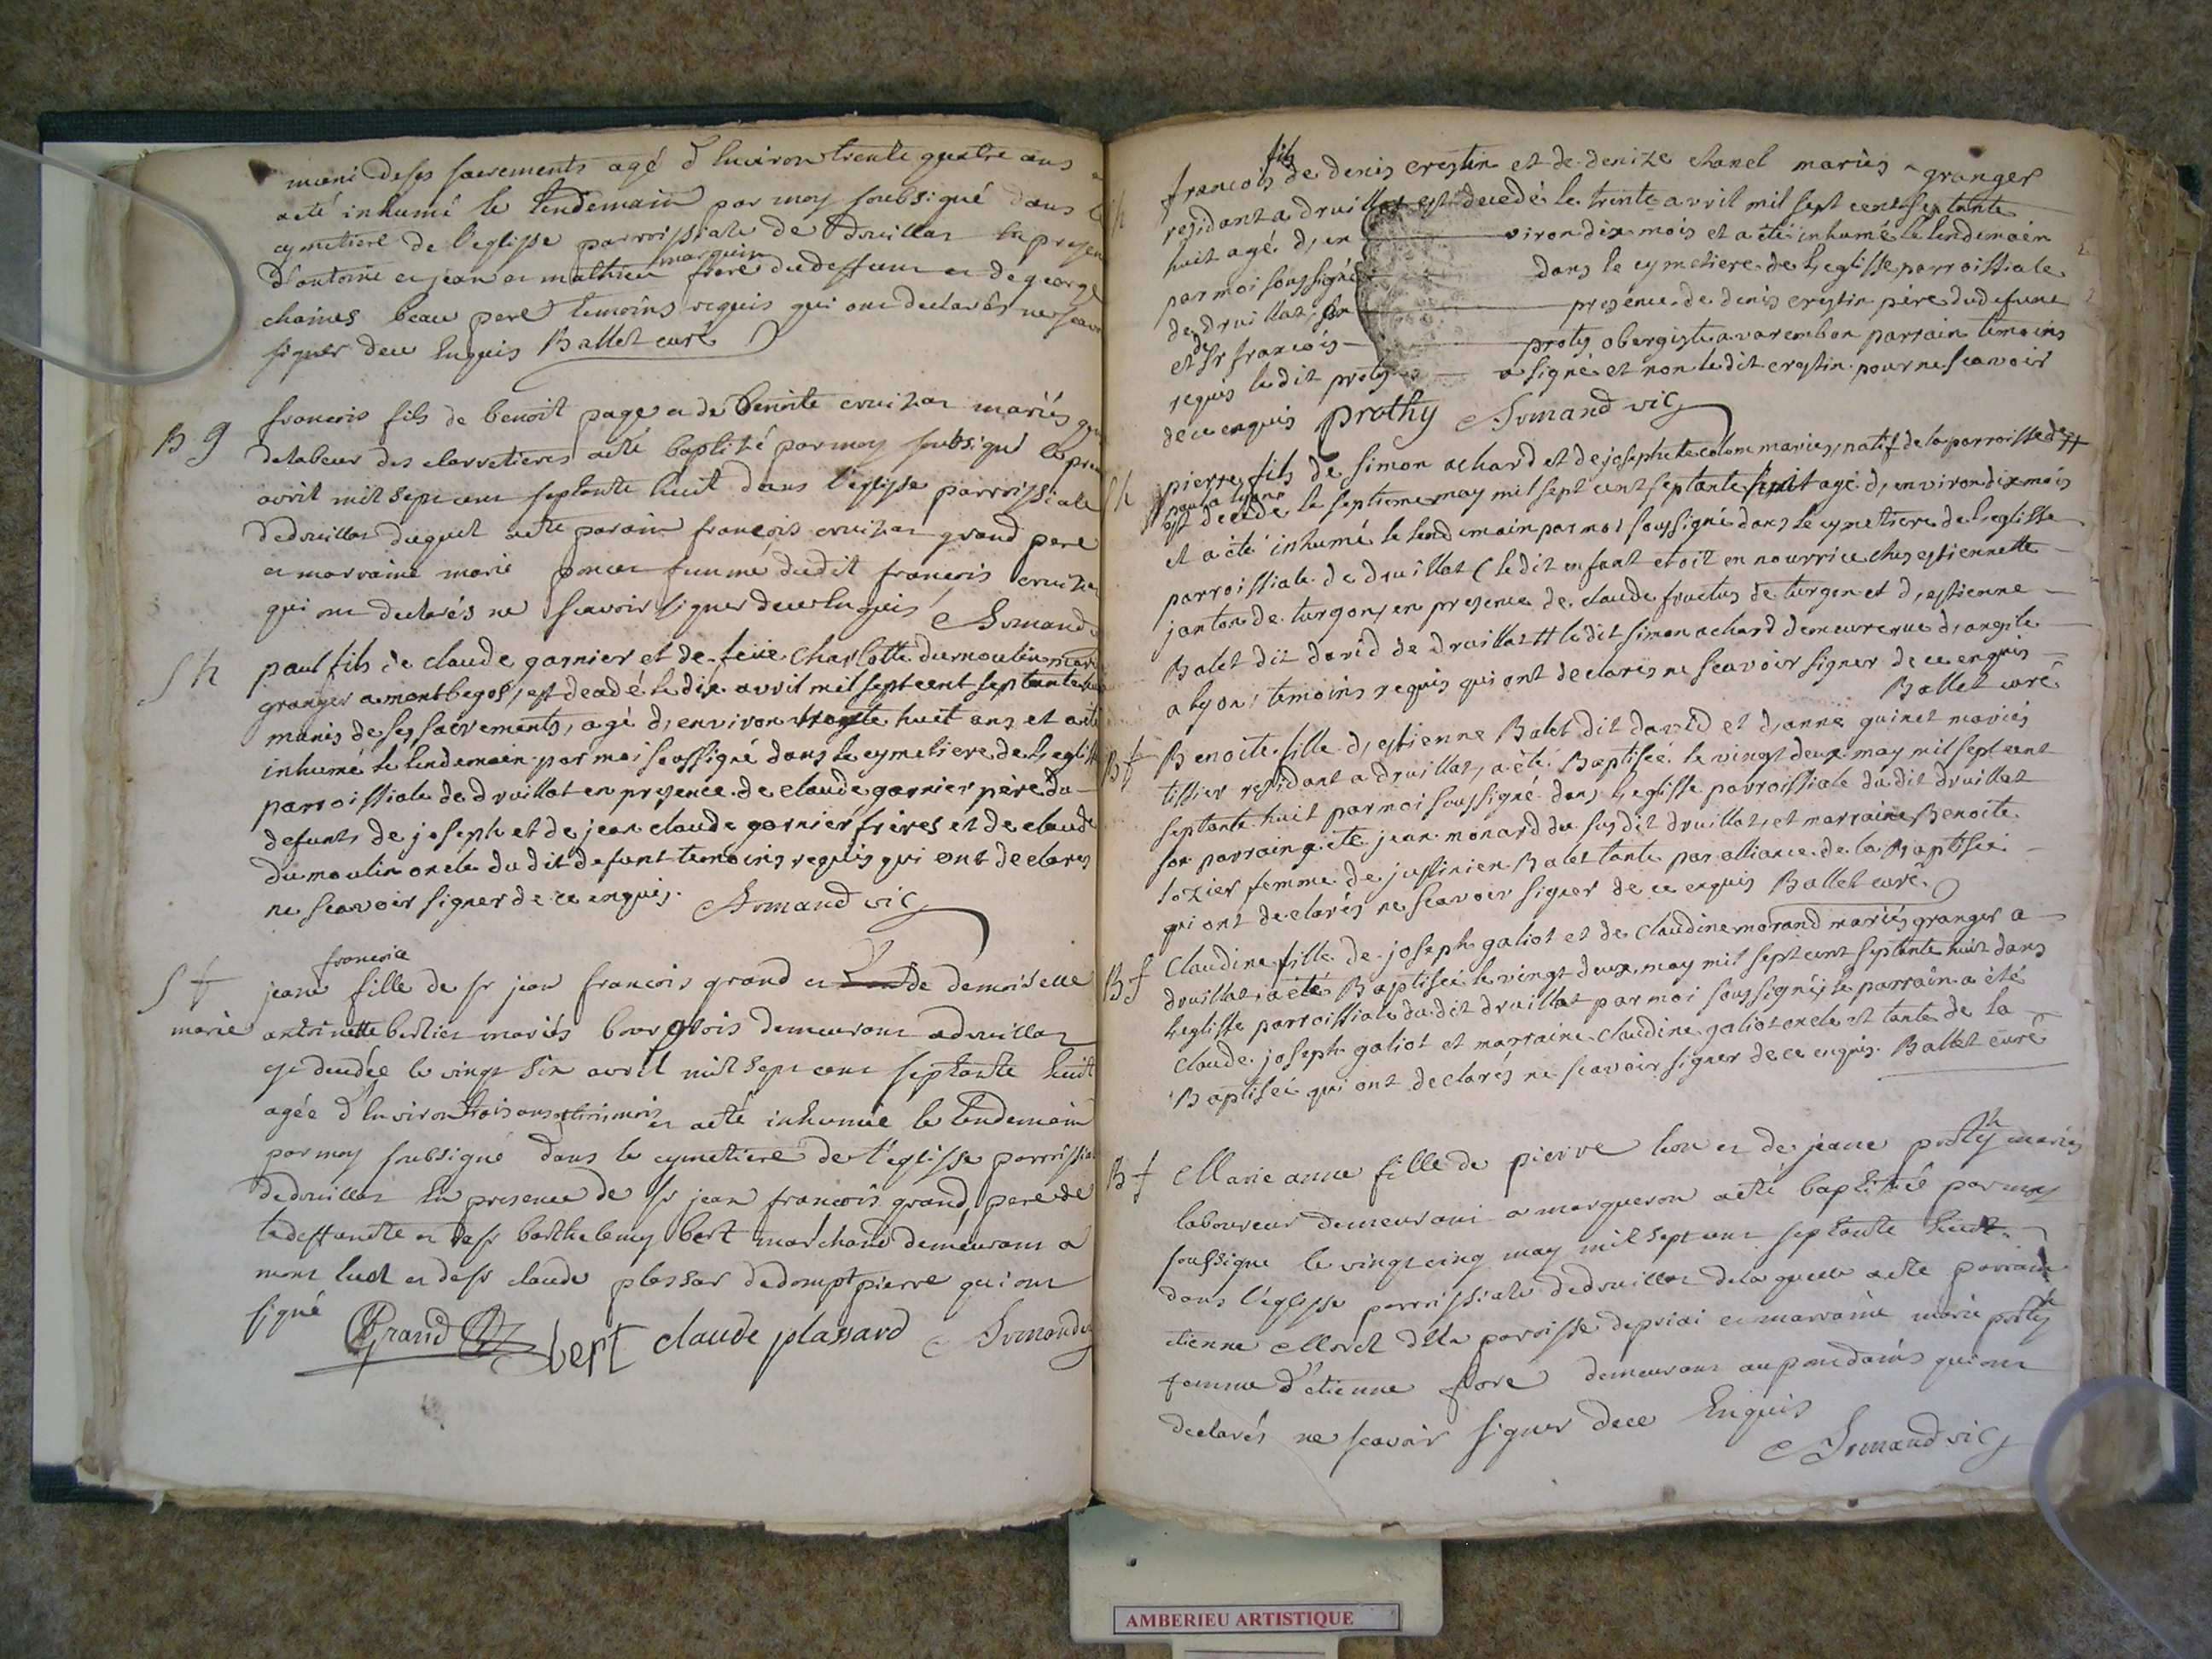 muni de ses sacrements agé d'Environ trente quatre ans
a eté inhumé le lendemain par moy soubsigné dans le
cymetiere de l'eglisse parroissiale de druillat En presen
d'antoine et jean et mathieu marguin frere du deffunt et de george
chaines beau pere temoins requis qui ont declarés ne scavoir
signer de ce Enquis Ballet curé
B g
francois fils de benoit page et de benoite cruizat mariés
delabeur des carretieres a eté baptizé par moy soubsigné le
avril mil sept cent septante huit dans l'eglisse parroissiale
de druillat duquel a eté parain françois cruizat grand pere
et marraine marie poncet femme dudit francois cruizat
qui ont declarés ne scavoir signer de ce Enquis Armand
S h
paul fils de claude garnier et de feüe Charlotte dumoulin mariés
granger a montbegos, est decedé le dix avril mil sept cent septante
munis de ses sacrements, agé d'environ trente huit ans et a eté
inhumé le lendemain par moi soussigné dans le cymetiere de l'eglisse
parroissiale de druillat en presence de claude garnier père du
defunt, de joseph et de jean claude garnier frères et de claude
dumoulin oncle du dit defunt temoins requis qui ont declarés
ne scavoir signer de ce enquis. Armand vic
S f
marie
francoise
jeane fille de sr jean francois grand et de demoiselle
antoinette berlier mariés bourgeois demeurant a druillat
est decedée le vingt six avril mil sept cent septante huit
agée d'Environ trois ans et a eté inhumée le lendemain
par moy soubsigné dans le cymetiere de l'eglisse parroissial
de druillat En presence de sr jean francois grand, pere de
la deffuncte et de sr barthelemy bert marchand demeurant a
mont luel et de sr claude plassar de dompt pierre qui ont
signé Grand bert claude plassard Armand vic
francois fils de denis crestin et de denize chanel mariés granger
residant a druillat est decedé le trente avril mil sept cent septante
huit agé d'en viron dix mois et a eté inhumé le lendemain
par moi soussigné dans le cymetiere de l'eglisse parroissiale
de druillat, en presence de denis crestin père du defunt
et de sr francois proty obergiste a varembon parrain temoins
requis le dit proty a signé et non le dit crestin pour ne scavoir
de ce enquis Prothy Armand vic
S h
pierre fils de simon achard et de josephte colom mariés, natif de la parroisse de #
est decedé le septieme may mil sept cent septante huit agé d'environ dix mois
et a eté inhumé le lendemain par moi soussigné dans le cymetiere de l'eglisse
parroissiale de druillat (le dit enfant etoit en nourrice ches estiennette
janton de turgon, en presence de claude fructus de turgon et d'estienne
Balet dit david de druillat # le dit simon achard demeure rue d'argile
a lyon, temoins requis qui ont declarés ne scavoir signer de ce enquis
Ballet curé
B f
Benoite fille d'estienne Balet dit david et d'anne guinet mariés
tissier residant a druillat, a eté Baptisée le vingt deux may mil sept cent
septante huit par moi soussigné dans l'eglisse parroissiale du dit druillat
son parrain a eté jean monard du susdit druillat, et marraine Benoite
lozier femme de justinien Balet tante par alliance de la Baptisée
qui ont declarés ne scavoir signer de ce enquis Ballet curé
B f
Claudine fille de joseph galiot et de Claudine morand mariés granger a
druillat, a eté Baptisée le vingt deux may mil sept cent septante huit dans
l'eglisse parroissiale du dit druillat par moi soussigné, le parrain a été
Claude joseph galiot et marraine Claudine galiot oncle et tante de la
Baptisée qui ont declarés ne scavoir signer de ce enquis. Ballet curé
B f
Marie anne fille de pierre leon et de jeane prothy mariés
laboureur demeurant a marqueron a eté baptisée par moy
soussigné le vingt cinq may mil sept cent septante huit
dans l'eglisse parroissiale de druillat de laquelle a eté parrain
etienne Morel de la paroisse de priai et marraine marie prothy
femme d'etienne flore demeurant au pondains qui ont
declarés ne scavoir signer de ce Enquis
Armand vic
AMBERIEU ARTISTIQUE